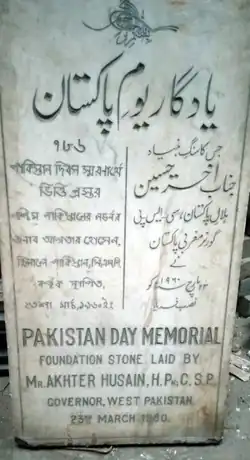 یادگار یوم پاکستان
۷۸۶
جس کا سنگ بنیاد
جناب اختر حسین
ہلال پاکستان، سی۔ایس۔پی
گورنر مغربی پاکستان
نے
۲۳ مارچ ۱۹۶۰ کو
نصب فرمایا
পাকিস্তান দিবস স্মরণার্থে
ভিত্তি প্রস্তর
পশ্চিম পাকিস্তানের গভর্নর
জনাব আখতার হোসেন,
হিলালে পাকিস্তান, সিএসপি
কর্তৃক স্থাপিত,
২৩শে মার্চ, ১৯৬০ইং
PAKISTAN DAY MEMORIAL
FOUNDATION STONE LAID BY
MR. AKHTER HUSAIN, H.PK, C.S.P.
GOVERNOR, WEST PAKISTAN
23RD MARCH 1960.